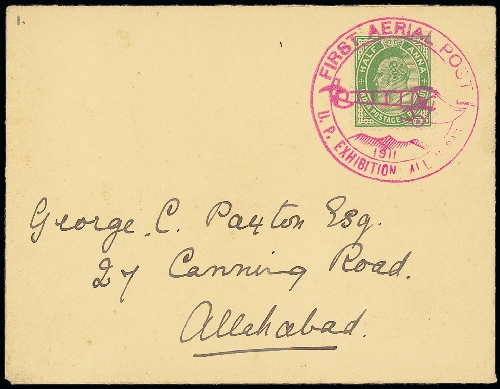 1.
FIRST AERIAL POST
HALF ANNA
INDIA POSTAGE &
1911
U. P. EXHIBITION
George. C. Paxton Esq.
27 Canning Road.
Allahabad.